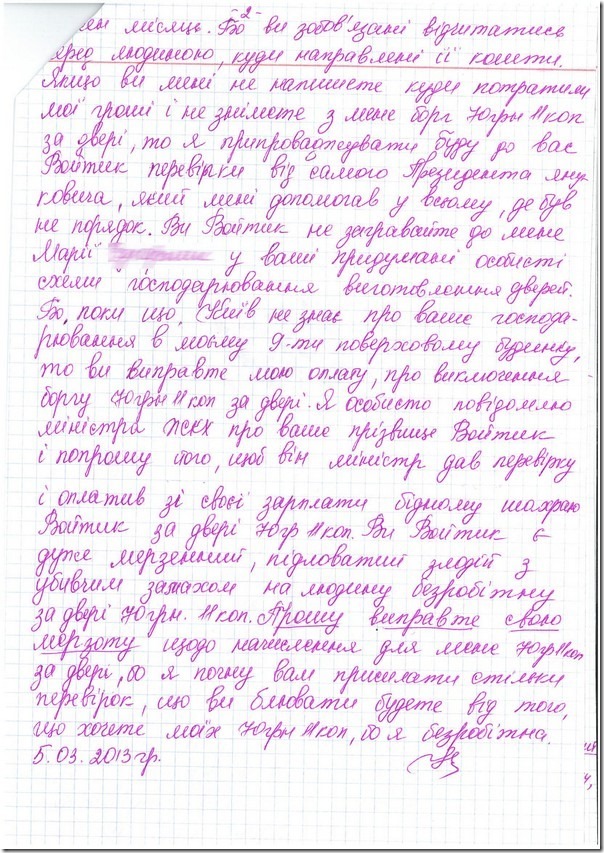 -2-
місяць. Бо ви зобов'язані відчитатись
людиною, куди направлені її кошти.
Якщо ви мені не напишете куди потратили
мої гроші і не знімете з мене борг 70грн 11коп
за двері, то я припроваджувати буду до вас
Войтик перевірки від самого Президента Яну-
ковича, який мені допомагав у всьому, де був
не порядок. Ви Войтик не загравайте до мене
Марії у ваші придумані особисті
схеми господарювання виготовлення дверей.
Бо, поки що, Київ не знає про ваше господа-
рювання в моєму 9-ти поверховому будинку,
то ви виправте мою оплату, про виключення
боргу 70грн 11коп за двері. Я особисто повідомлю
міністра ЖКХ про ваше прізвище Войтик
і попрошу його, щоб він міністр дав перевірку
і оплатив зі своєї зарплати бідному шахраю
Войтик за двері 70гр 11коп. Ви Войтик є
дуже мерзенний, підловатий злодій з
убивчим замахом на людину безробітну
за двері 70грн. 11коп. Прошу виправте свою
мерзоту щодо начислення для мене 70гр 11коп
за двері, бо я почну вам присилати стільки
перевірок, що ви блювати будете від того,
що хочете моїх 70грн 11коп, бо я безробітна.
5.03.2013гр.